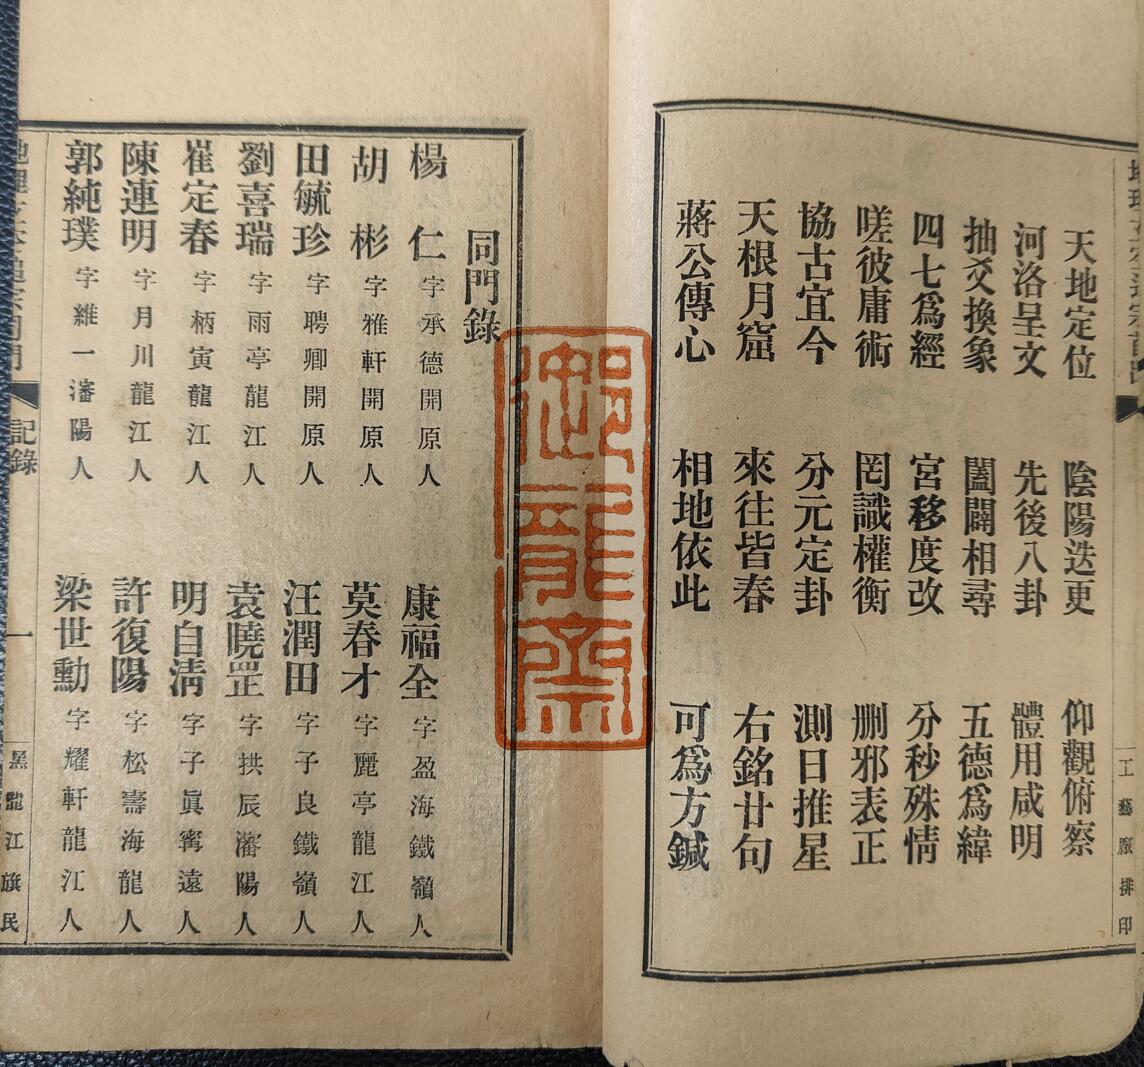 天地定位 陰陽迭更 仰觀俯察
河洛呈文 先後八卦 體用咸明
抽爻換象 闔闢相尋 五德爲緯
四七爲經 宮移度改 分秒殊情
嗟彼庸術 罔識權衡 删邪表正
協古宜今 分元定卦 測日推星
天根月窟 來往皆春 右銘廿句
蔣公傳心 相地依此 可爲方鍼
工藝厰排印
御龍齋
同門錄
楊仁 字承德開原人 康福全 字盈海鐵嶺人
胡彬 字雅軒開原人 莫春才 字麗亭龍江人
田毓珍 字聘卿開原人 汪潤田 字子良鐵嶺人
劉喜瑞 字雨亭龍江人 袁曉罡 字拱辰瀋陽人
崔定春 字柄寅龍江人 明自清 字子眞寗遠人
陳連明 字月川龍江人 許復陽 字松壽海龍人
郭純璞 字維一瀋陽人 梁世勳 字耀軒龍江人
記錄 一 黑龍江旗民